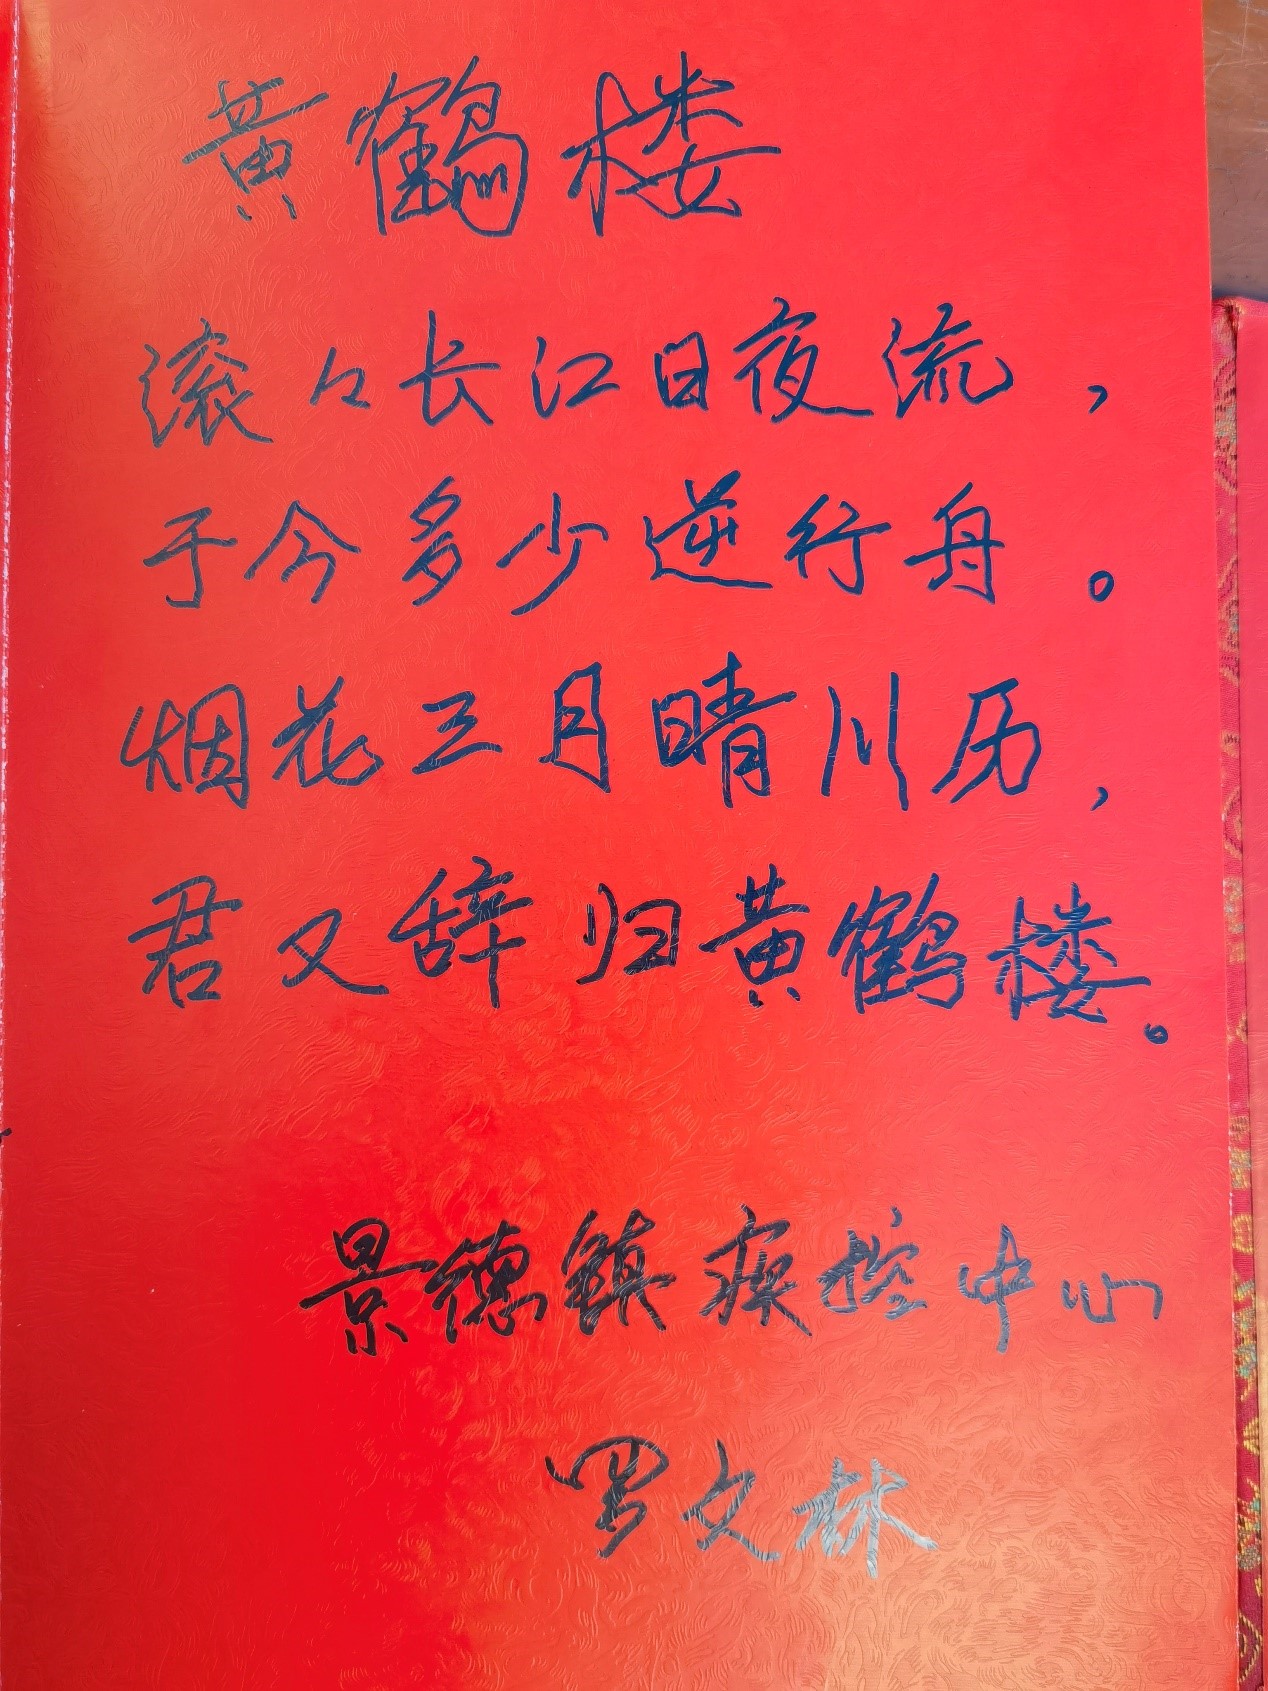 黄鹤楼
滚々长江日夜流，
于今多少逆行舟。
烟花三月晴川历，
君又辞归黄鹤楼。
景德镇疾控中心
罗文林